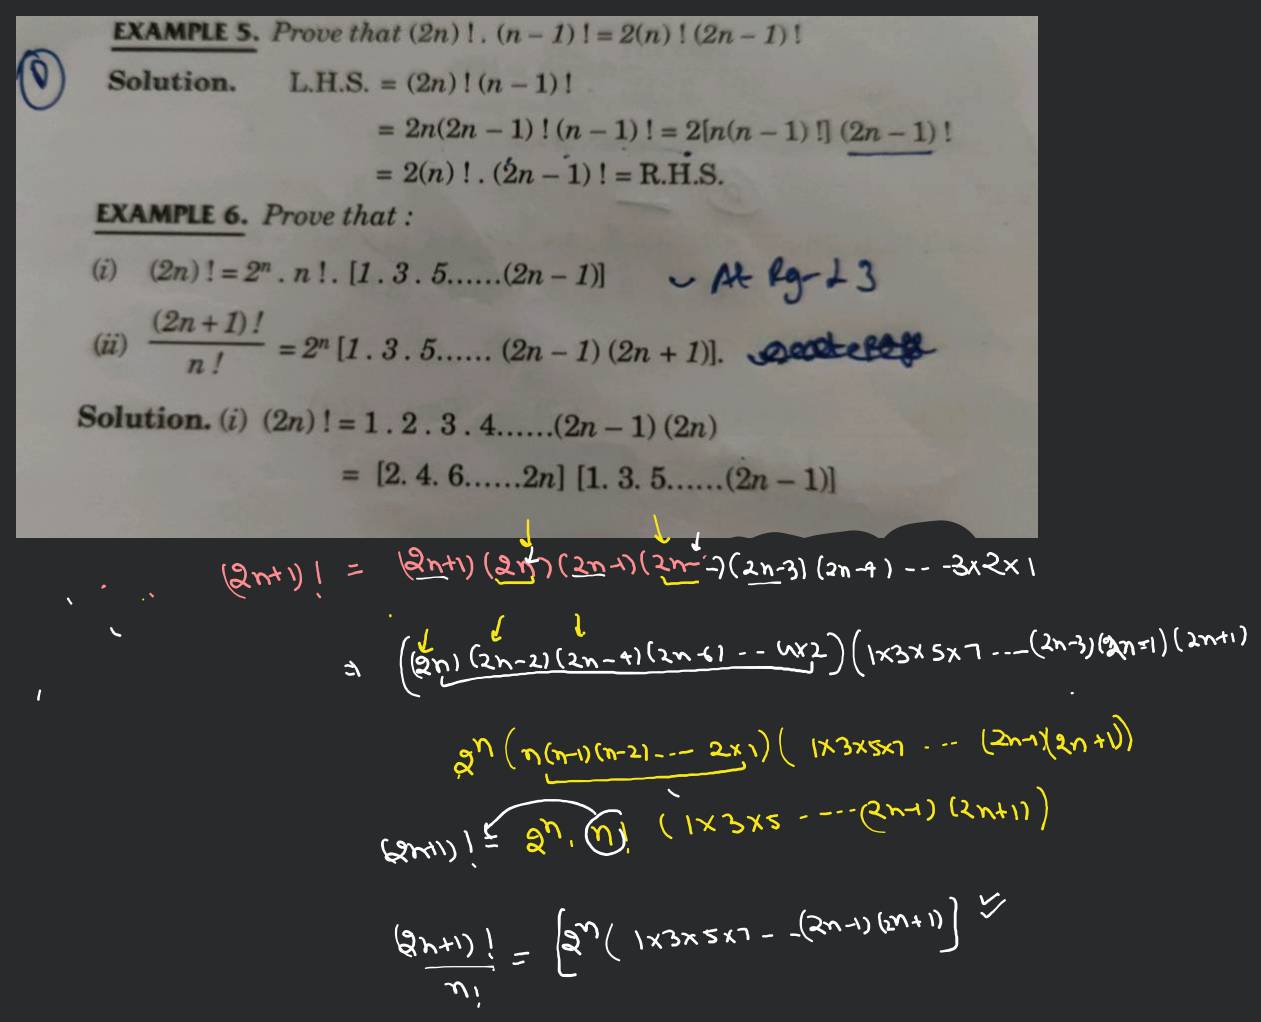 EXAMPLE 5. Prove that (2n) ! . (n – 1) ! = 2(n) ! (2n – 1) !
Solution. L.H.S. = (2n) ! (n – 1) !
= 2n(2n – 1) ! (n – 1) ! = 2[n(n – 1) !] (2n – 1) !
= 2(n) ! . (2n – 1) ! = R.H.S.
EXAMPLE 6. Prove that :
(i) (2n) ! = 2ⁿ . n ! . [1 . 3 . 5......(2n – 1)]
At
(ii) (2n + 1) ! / n ! = 2ⁿ [1 . 3 . 5...... (2n – 1) (2n + 1)].
Solution. (i) (2n) ! = 1 . 2 . 3 . 4......(2n – 1) (2n)
= [2. 4. 6......2n] [1. 3. 5......(2n – 1)]
(2n+1) ! = (2n+1) (2n) (2n-1) (2n-2) (2n-3) (2n-4) -- - 3×2×1
⇒ ((2n) (2n-2) (2n-4) (2n-6) - -- 4×2) (1×3×5×7 ---- (2n-3) (2n-1) (2n+1)
2ⁿ (n(n-1)(n-2) ---- 2×1) ( 1×3×5×7 - -- (2n-1)(2n+1))
(2n+1) ! = 2ⁿ . n! (1×3×5 - ---- (2n-1) (2n+1))
(2n+1) ! / n! = [2ⁿ ( 1×3×5×7 - -- (2n-1) (2n+1)]